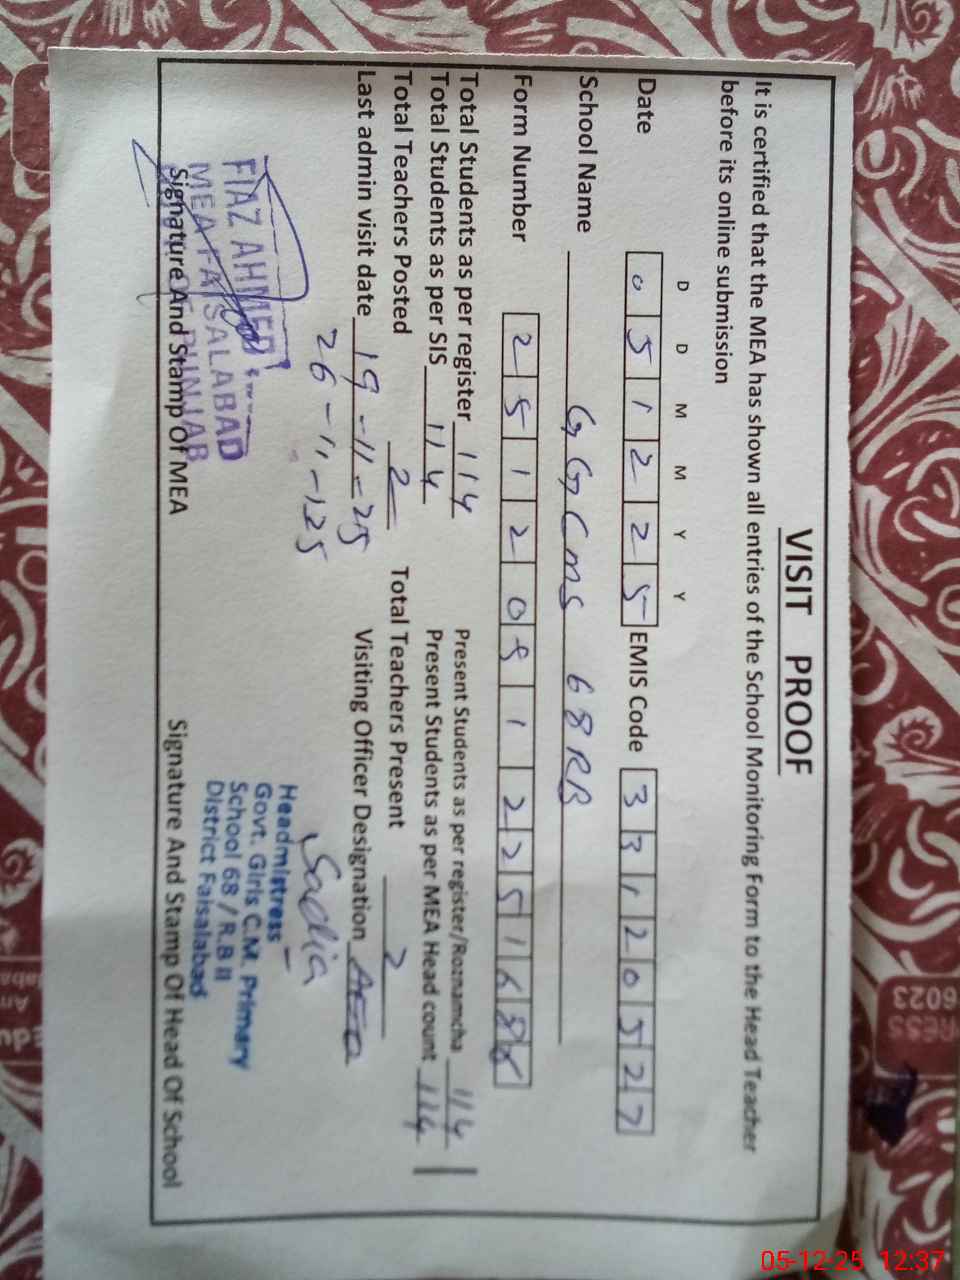 VISIT PROOF
It is certified that the MEA has shown all entries of the School Monitoring Form to the Head Teacher
before its online submission
D D M M Y Y
Date 0 5 1 2 2 5 EMIS Code 3 3 1 2 0 5 2 7
School Name GGCMS 68RB
Form Number 2 5 1 2 0 5 1 2 2 5 1 6 8
Total Students as per register 114 Present Students as per register/Roznamcha 114
Total Students as per SIS 114 Present Students as per MEA Head count 114
Total Teachers Posted 2 Total Teachers Present 2
Last admin visit date 19-11-25 Visiting Officer Designation AEO
26-11-125
Sadia
FIAZ AHMED
MEA FAISALABAD
PUNJAB
Headmistress
Govt. Girls C.M. Primary
School 68 / R.B II
District Faisalabad
Signature And Stamp Of MEA Signature And Stamp Of Head Of School
RESS
6023
05-12-25 12:37